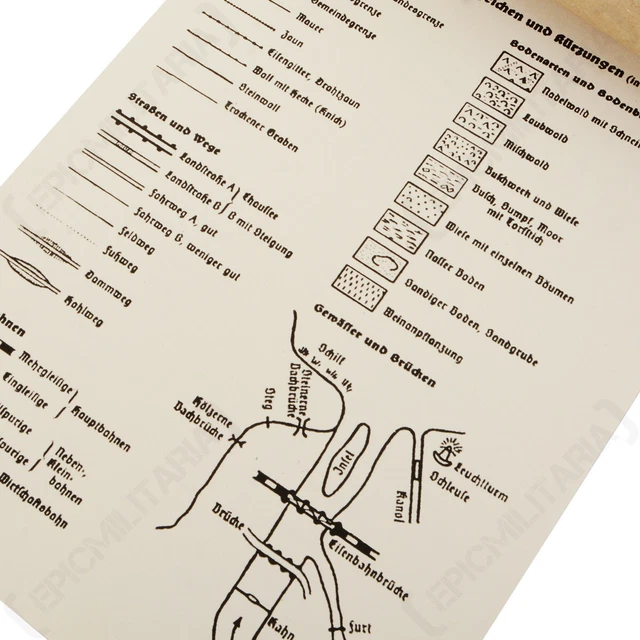 Gemeindegrenze
Mauer
Zaun
Eisengitter, Drahtzaun
Wall mit Hecke (Knick)
Steinwall
Trockener Graben
Straßen und Wege
Landstraße A
Landstraße B
Chaussee
B mit Steigung
Fahrweg A, gut
Fahrweg B, weniger gut
Feldweg
Fußweg
Dammweg
Hohlweg
Mehrgleisige
Eingleisige
Hauptbahnen
Neben-,
Klein-
bahnen
Wirtschaftsbahn
und Kürzungen (in
Bodenarten und Bodenb
Nadelwald mit Schnei
Laubwald
Mischwald
Buschwerk und Wiese
Busch, Sumpf, Moor
mit Torfstich
Wiese mit einzelnen Bäumen
Nasser Boden
Sandiger Boden, Sandgrube
Weinanpflanzung
Gewässer und Brücken
Schilf
Steinerne
Dachbrücke
Steg
Hölzerne
Dachbrücke
Insel
Leuchtturm
Schleuse
Kanal
Brücke
Eisenbahnbrücke
Kahn
Furt
EPICMILITARIA